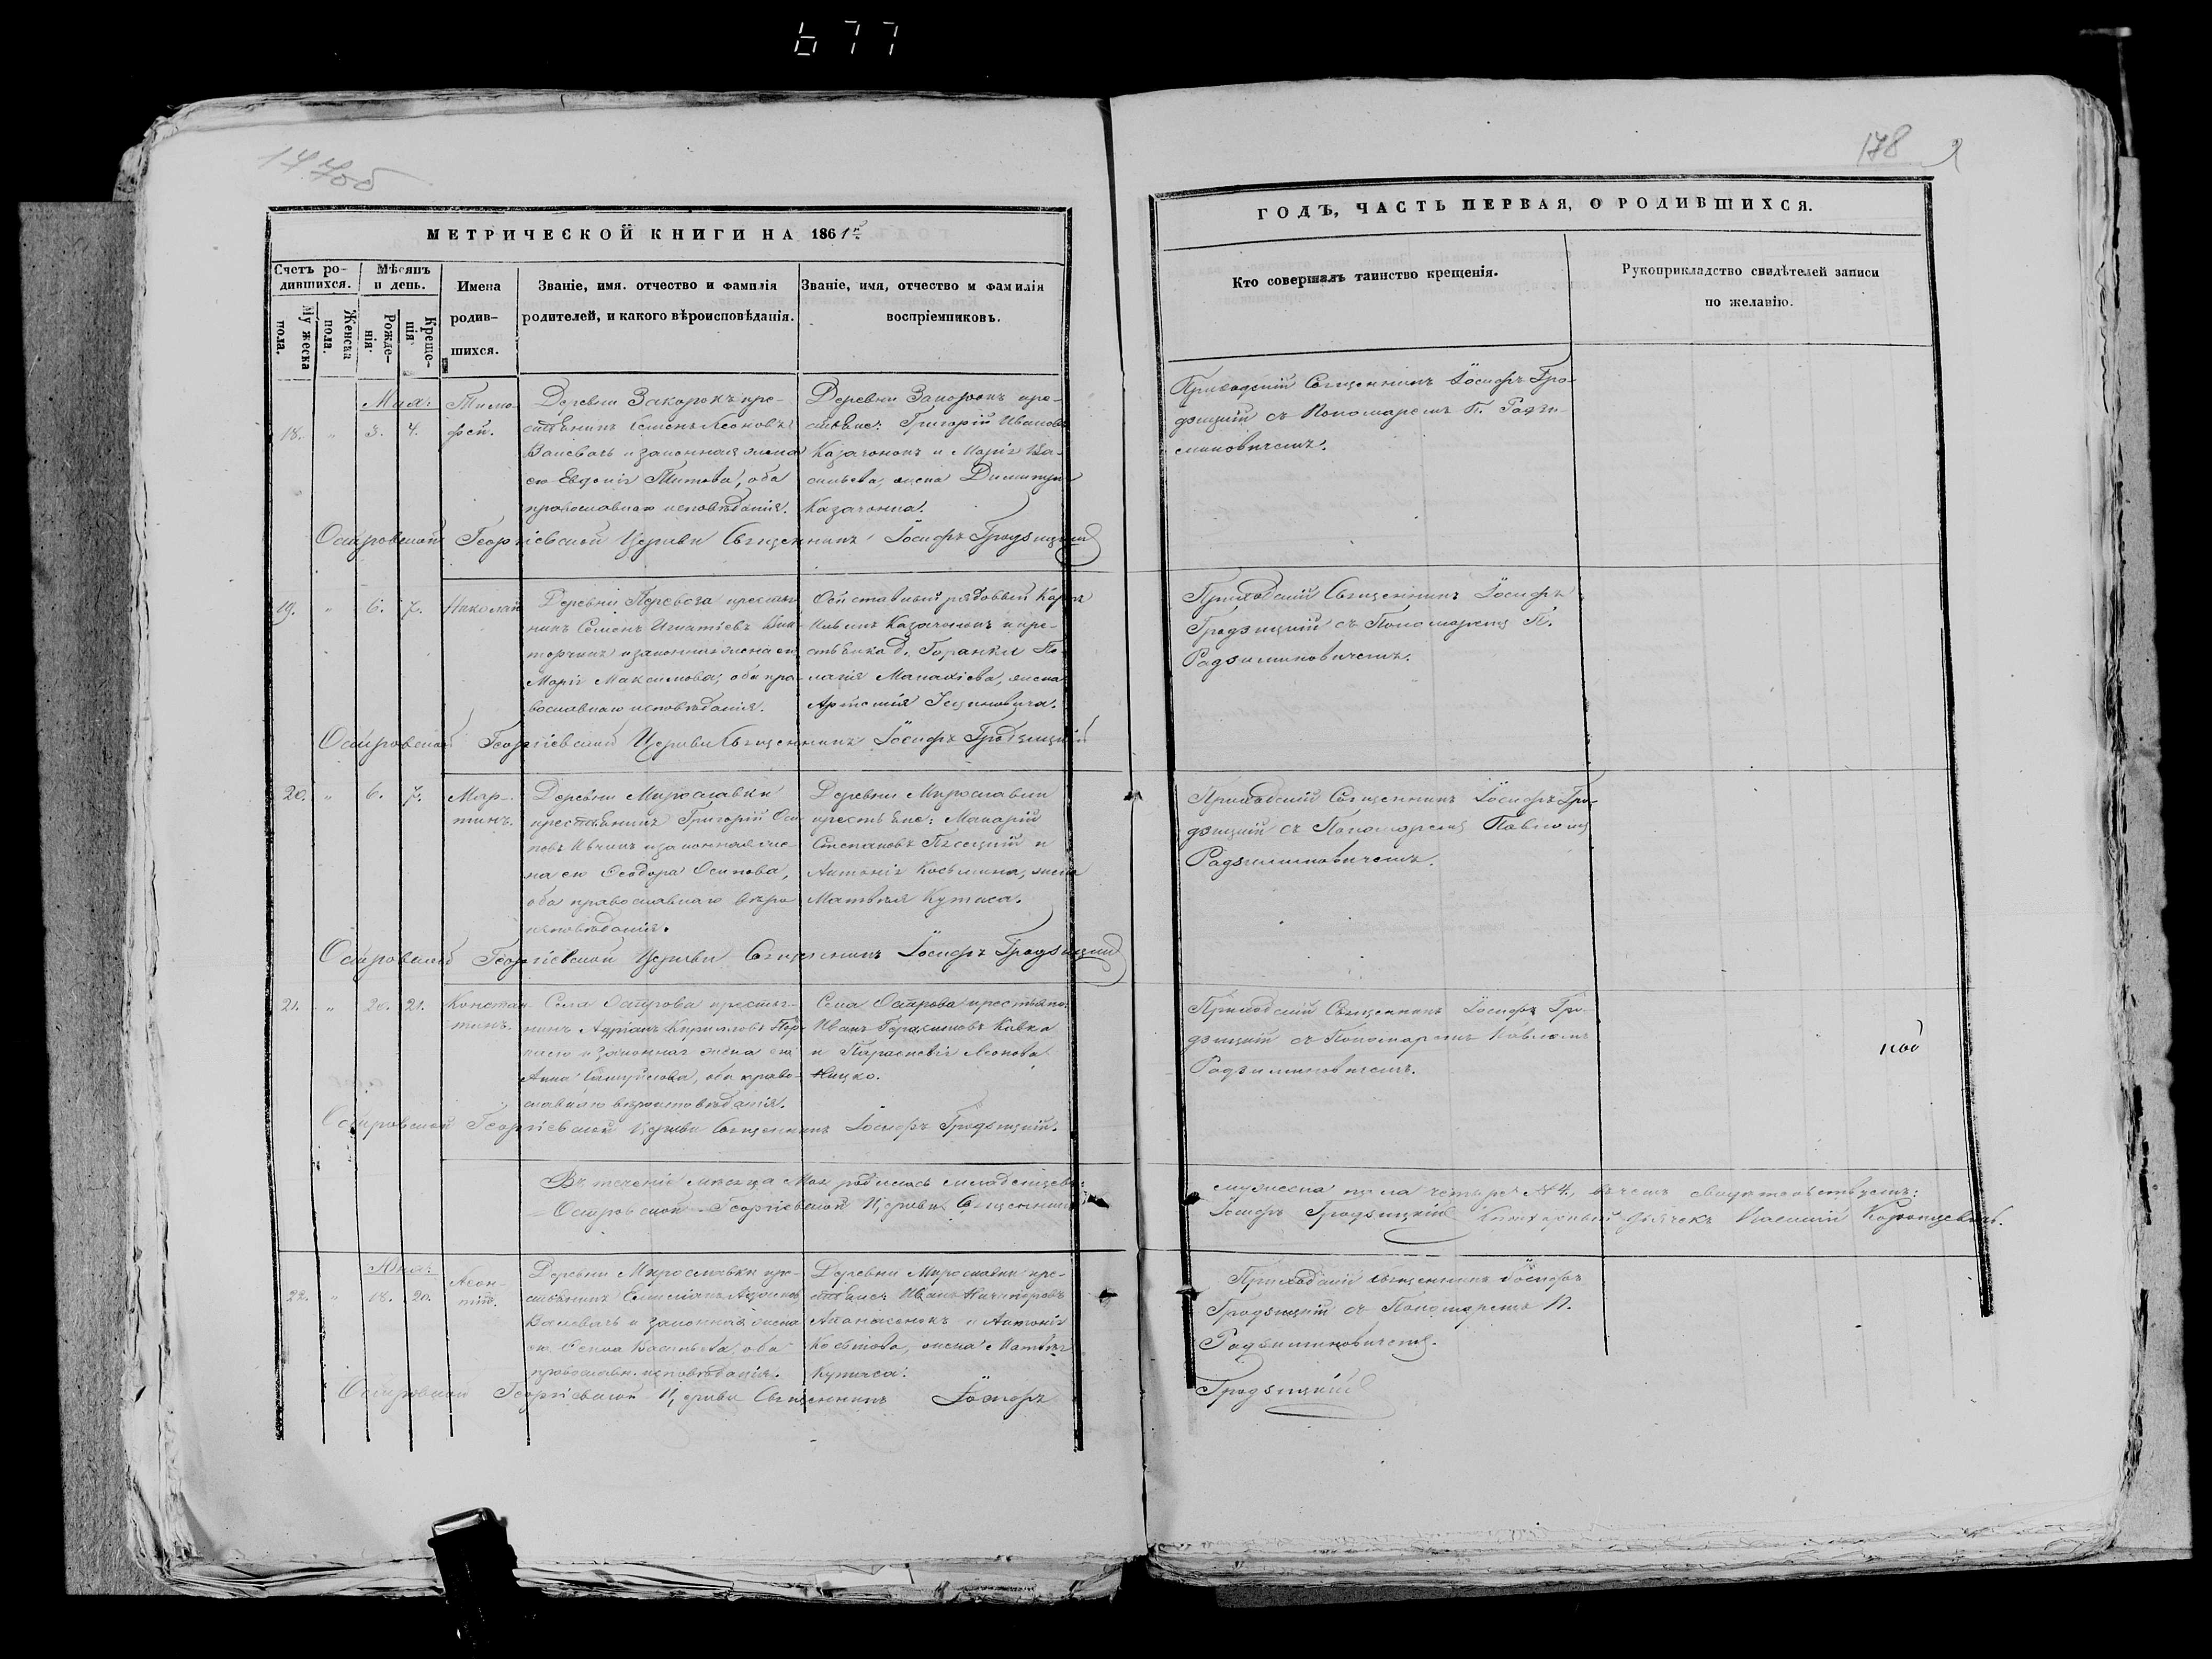 677
177об
178
МЕТРИЧЕСКОЙ КНИГИ НА 1861й
ГОДЪ, ЧАСТЬ ПЕРВАЯ, О РОДИВШИХСЯ.
Счетъ родившихся.
Мужеска пола.
Женска пола.
Мѣсяцъ и день.
Рожденія.
Крещенія.
Имена родившихся.
Званіе, имя. отчество и фамилія
родителей, и какого вѣроисповѣданія.
Званіе, имя, отчество и фамилія
воспріемниковъ.
Кто совершалъ таинство крещенія.
Рукоприкладство свидѣтелей записи
по желанію.
Мая:
18. " 3. 4.
Тимо-
фей.
Деревни Закорокъ кре-
стьянинъ Семенъ Леоновъ
и законная жена
его Евдокія Титова, оба
православнаго исповѣданія.
Деревни Закорокъ кре-
стьяне: Григорій Ивановъ
Казачонокъ и Марія Ва-
сильева, жена Димитрія
Казачонка.
Приходскій Священникъ Іосифъ Гро-
дзицкій съ Пономаремъ П. Радзи-
миновичемъ.
Островской Георгіевской Церкви Священникъ Іосифъ Гродзицкій
19. " 6. 7.
Николай
Деревни Перевоза крестья-
нинъ Семенъ Игнатіевъ
и законная жена его
Марія Максимова, оба пра-
вославнаго исповѣданія.
Отставный рядовый Карпъ
Казачонокъ и кре-
стьянка д. Горанки Пе-
лагія Малахіева, жена
Приходскій Священникъ Іосифъ
Гродзицкій съ Пономаремъ П.
Радзиминовичемъ.
Островской Георгіевской Церкви Священникъ Іосифъ Гродзицкій
20. " 6. 7.
Мар-
тинъ.
Деревни Мирославки
крестьянинъ Григорій Оси-
повъ и законная же-
на его Ѳеодора Осипова,
оба православнаго вѣро
исповѣданія.
Деревни Мирославки
крестьяне: Макарій
Степановъ Пѣсецкій и
Антонія Косьмина, жена
Матвѣя Купчаса.
Приходскій Священникъ Іосифъ Гро-
дзицкій съ Пономаремъ Павломъ
Радзиминовичемъ.
Островской Георгіевской Церкви Священникъ Іосифъ Гродзицкій
21. " 20. 21.
Констан-
тинъ.
Села Острова крестья-
нинъ Адріанъ Кирилловъ
и законная жена его
Анна Самуйлова, оба право-
славнаго вѣроисповѣданія.
Села Острова крестьяне:
Иванъ Герасимовъ Кавка
и Параскевія Леонова
Ницко.
Приходскій Священникъ Іосифъ Гро-
дзицкій съ Пономаремъ Павломъ
Радзиминовичемъ.
Островской Георгіевской Церкви Священникъ Іосифъ Гродзицкій.
Въ теченіе мѣсяца Мая родилось младенцевъ: мужеска пола четыре № 4, въ чемъ свидѣтельствуемъ:
Островской Георгіевской Церкви Священникъ Іосифъ Гродзицкій дьячекъ
Юня:
22. " 18. 20.
Леон-
тій.
Деревни Мирославки кре-
стьянинъ
и законная жена
его Васильева, оба
православн. исповѣданія.
Деревни Мирославки кре-
стьяне: Иванъ Никифоровъ
Апанасонокъ и Антонія
жена Матвѣя
Купчаса.
Приходскій священникъ Іосифъ
Гродзицкій съ Пономаремъ П.
Радзиминовичемъ.
Островской Георгіевской Церкви Священникъ Іосифъ Гродзицкій